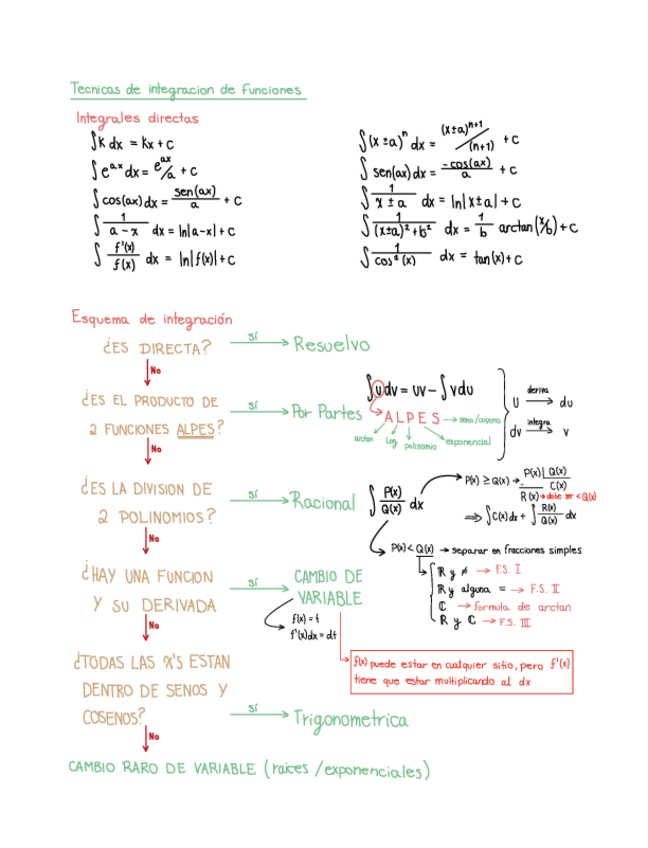 Tecnicas de integracion de funciones
Integrales directas
∫k dx = kx + c
∫e^ax dx = e^ax/a + c
∫cos(ax) dx = sen(ax)/a + c
∫ 1/(a-x) dx = ln|a-x| + c
∫ f'(x)/f(x) dx = ln|f(x)| + c
∫(x±a)^n dx = (x±a)^(n+1)/(n+1) + c
∫sen(ax) dx = -cos(ax)/a + c
∫ 1/(x±a) dx = ln|x±a| + c
∫ 1/((x±a)²+b²) dx = 1/b arctan(x/b) + c
∫ 1/cos²(x) dx = tan(x) + c
Esquema de integración
¿ES DIRECTA? sí → Resuelvo
↓ No
¿ES EL PRODUCTO DE
2 FUNCIONES ALPES?
sí → Por Partes
∫udv = uv - ∫vdu
ALPES → seno/coseno
arctan Log polinomio exponencial
u deriva → du
dv integra → v
↓ No
¿ES LA DIVISION DE
2 POLINOMIOS?
sí → Racional ∫ P(x)/Q(x) dx
P(x) ≥ Q(x) → P(x) | Q(x)
- C(x)
R(x) → debe ser < Q(x)
⇒ ∫C(x) dx + ∫ R(x)/Q(x) dx
P(x) < Q(x) → separar en fracciones simples
ℝ y ≠ → F.S. I
ℝ y alguna = → F.S. II
ℂ → formula de arctan
ℝ y ℂ → F.S. III
↓ No
¿HAY UNA FUNCION
Y SU DERIVADA
sí → CAMBIO DE
VARIABLE
f(x) = t
f'(x)dx = dt
f(x) puede estar en cualquier sitio, pero f'(x)
tiene que estar multiplicando al dx
↓ No
¿TODAS LAS X'S ESTAN
DENTRO DE SENOS Y
COSENOS?
sí → Trigonometrica
↓ No
CAMBIO RARO DE VARIABLE (raices/exponenciales)